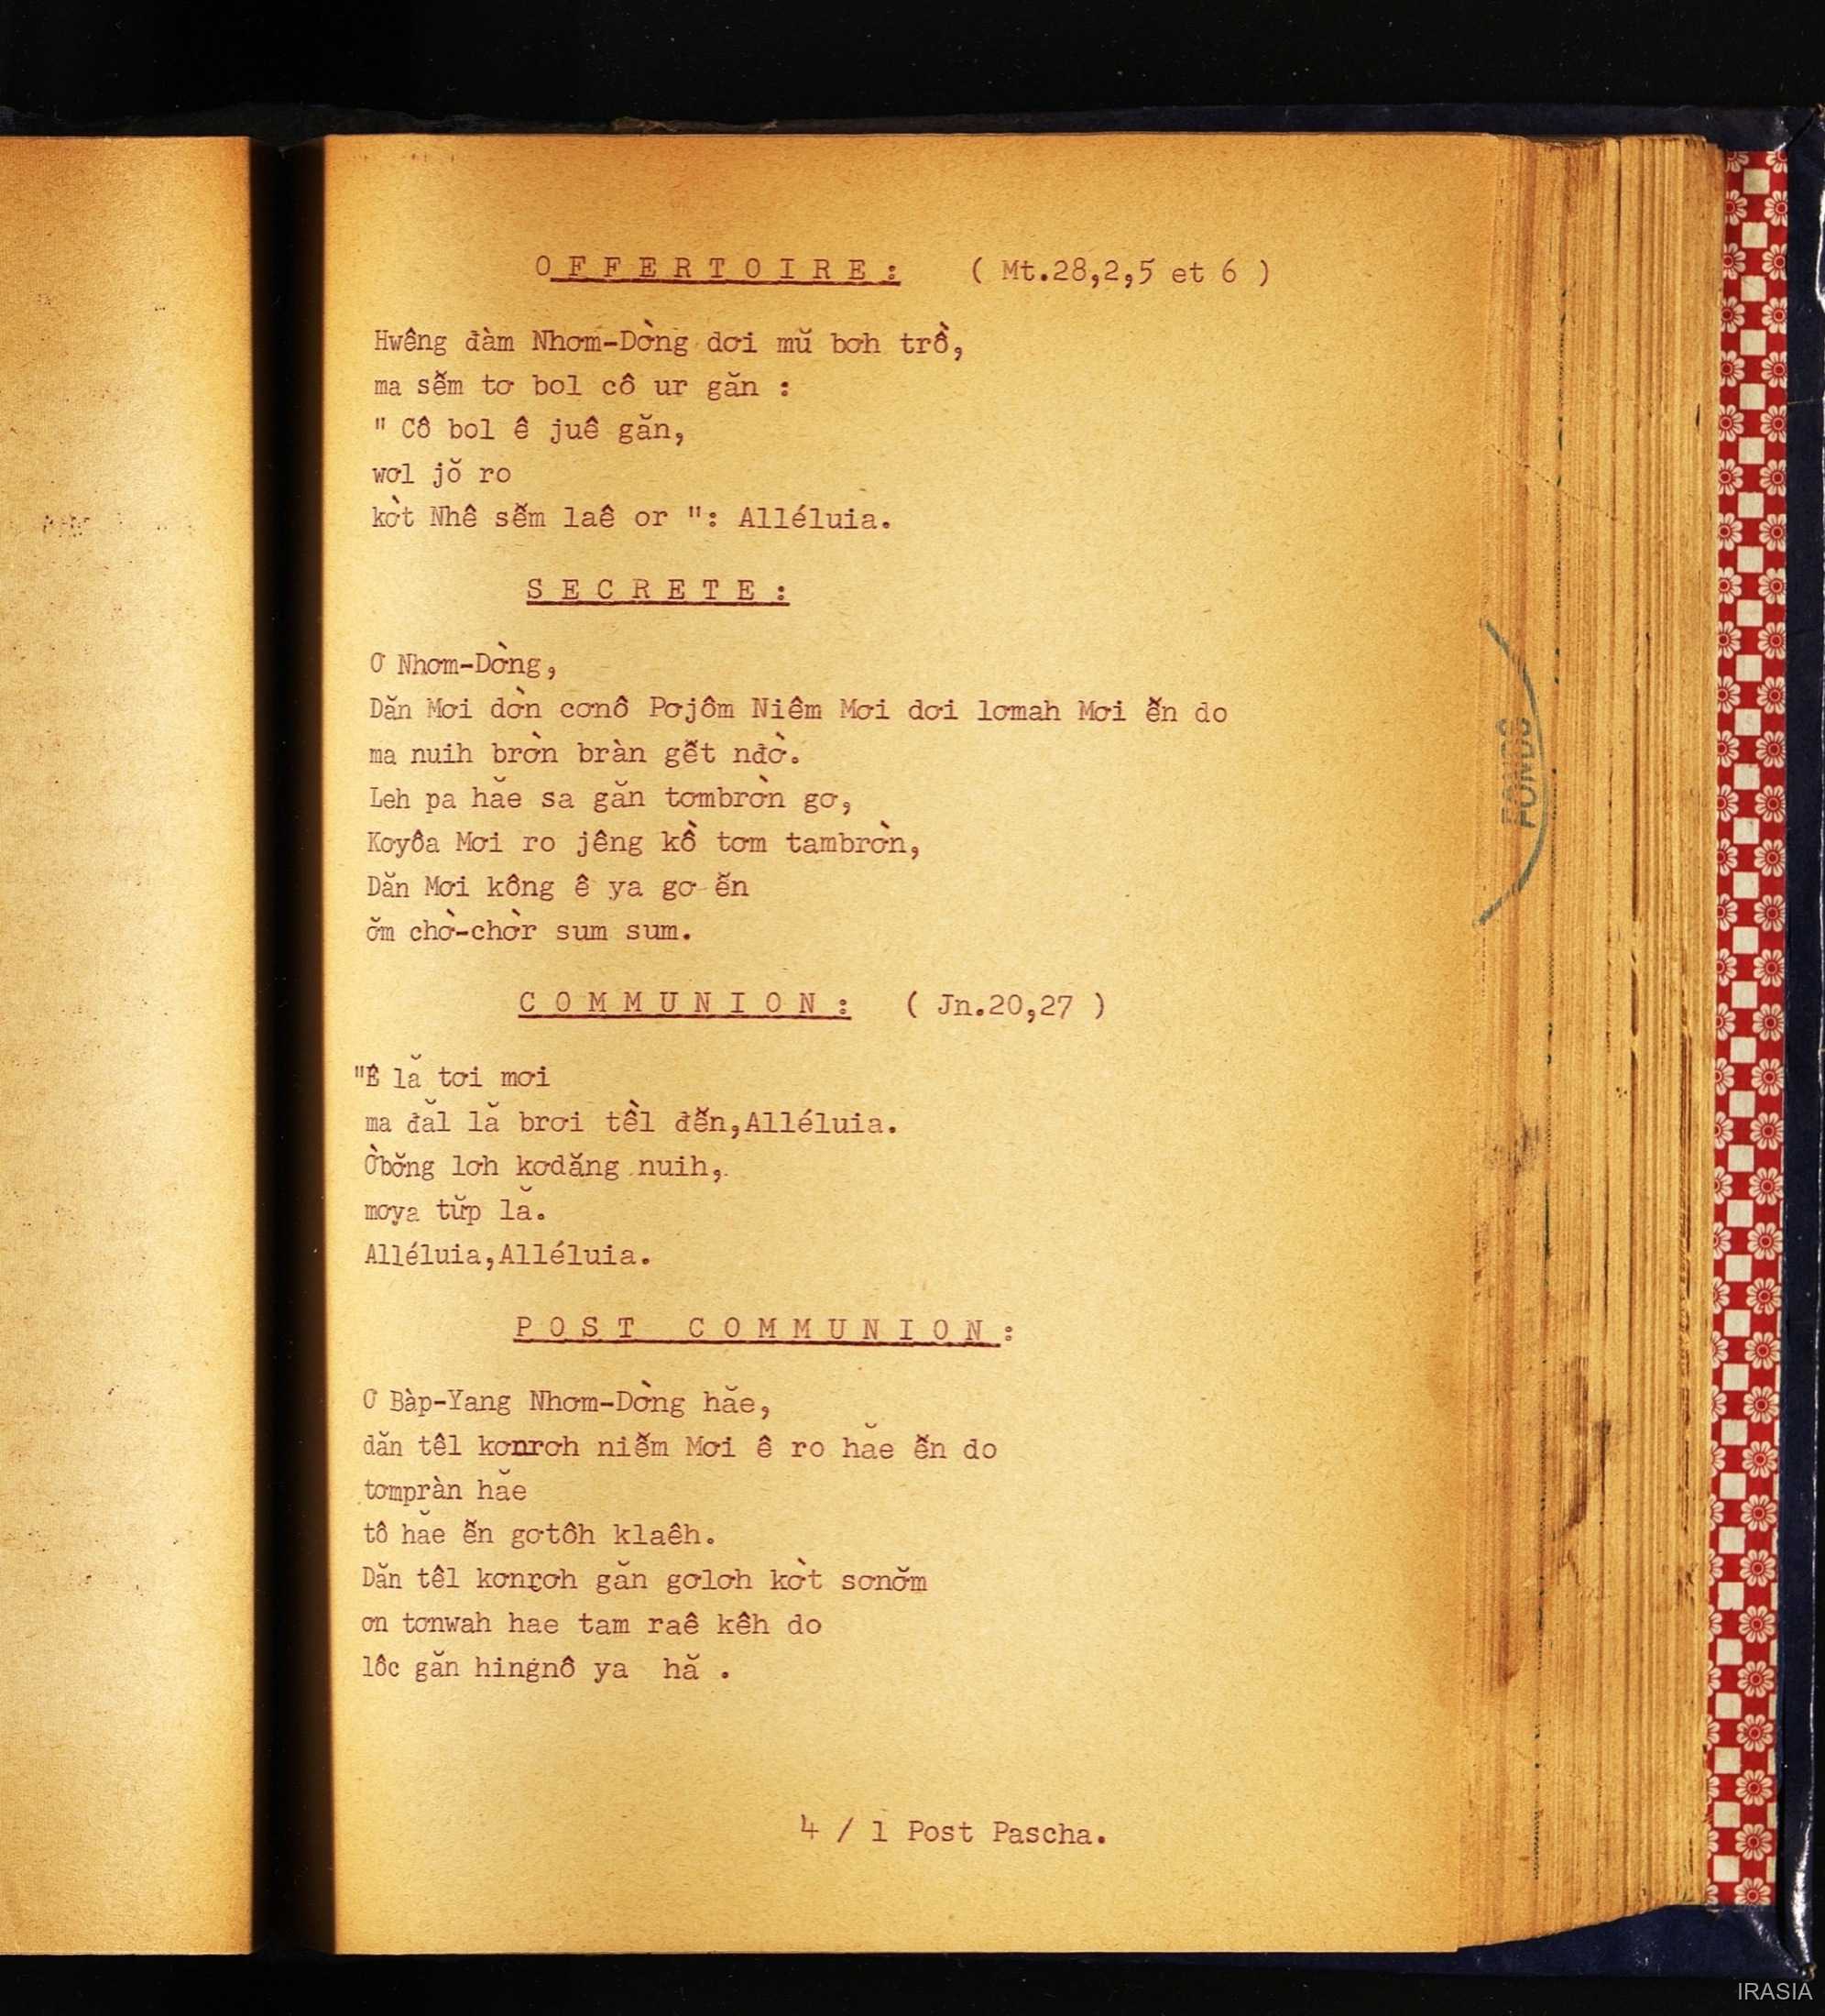 OFFERTOIRE: ( Mt.28,2,5 et 6 )
Hwêng đàm Nhơm-Dờng dơi mŭ bơh trồ,
ma sê̆m tơ bol cô ur găn :
" Cô bol ê juê găn,
wơl jŏ ro
kờt Nhê sê̆m laê or ": Alléluia.
SECRETE:
Ơ Nhơm-Dờng,
Dăn Mơi dờn cơnô Pơjôm Niêm Mơi dơi lơmah Mơi ê̆n do
ma nuih brờn bràn gê̆t nđờ.
Leh pa hăe sa găn tơmbrờn gơ,
Kơyôa Mơi ro jêng kồ tơm tambrờn,
Dăn Mơi kông ê ya gơ ê̆n
ơ̆m chờ-chờr sum sum.
COMMUNION: ( Jn.20,27 )
"Ê lă tơi mơi
ma đăl lă brơi tềl đê̆n,Alléluia.
Ờbơ̆ng lơh kơdăng nuih,
mơya tư̆p lă.
Alléluia,Alléluia.
POST COMMUNION:
Ơ Bàp-Yang Nhơm-Dờng hăe,
dăn têl kơnrơh niê̆m Mơi ê ro hăe ê̆n do
tơmpràn hăe
tô hăe ê̆n gơtôh klaêh.
Dăn têl kơnrơh găn gơlơh kờt sơnơ̆m
ơn tơnwah hae tam raê kêh do
lôc găn hingnô ya hă .
4 / 1 Post Pascha.
FONDS
IRASIA